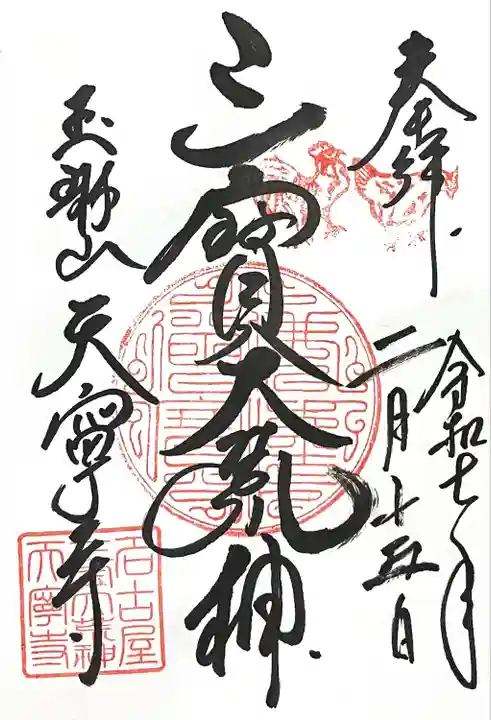 奉拝
令和七年
二月十五日
三寶大荒神
天寧寺
名古屋
三寶大荒神
天寧寺